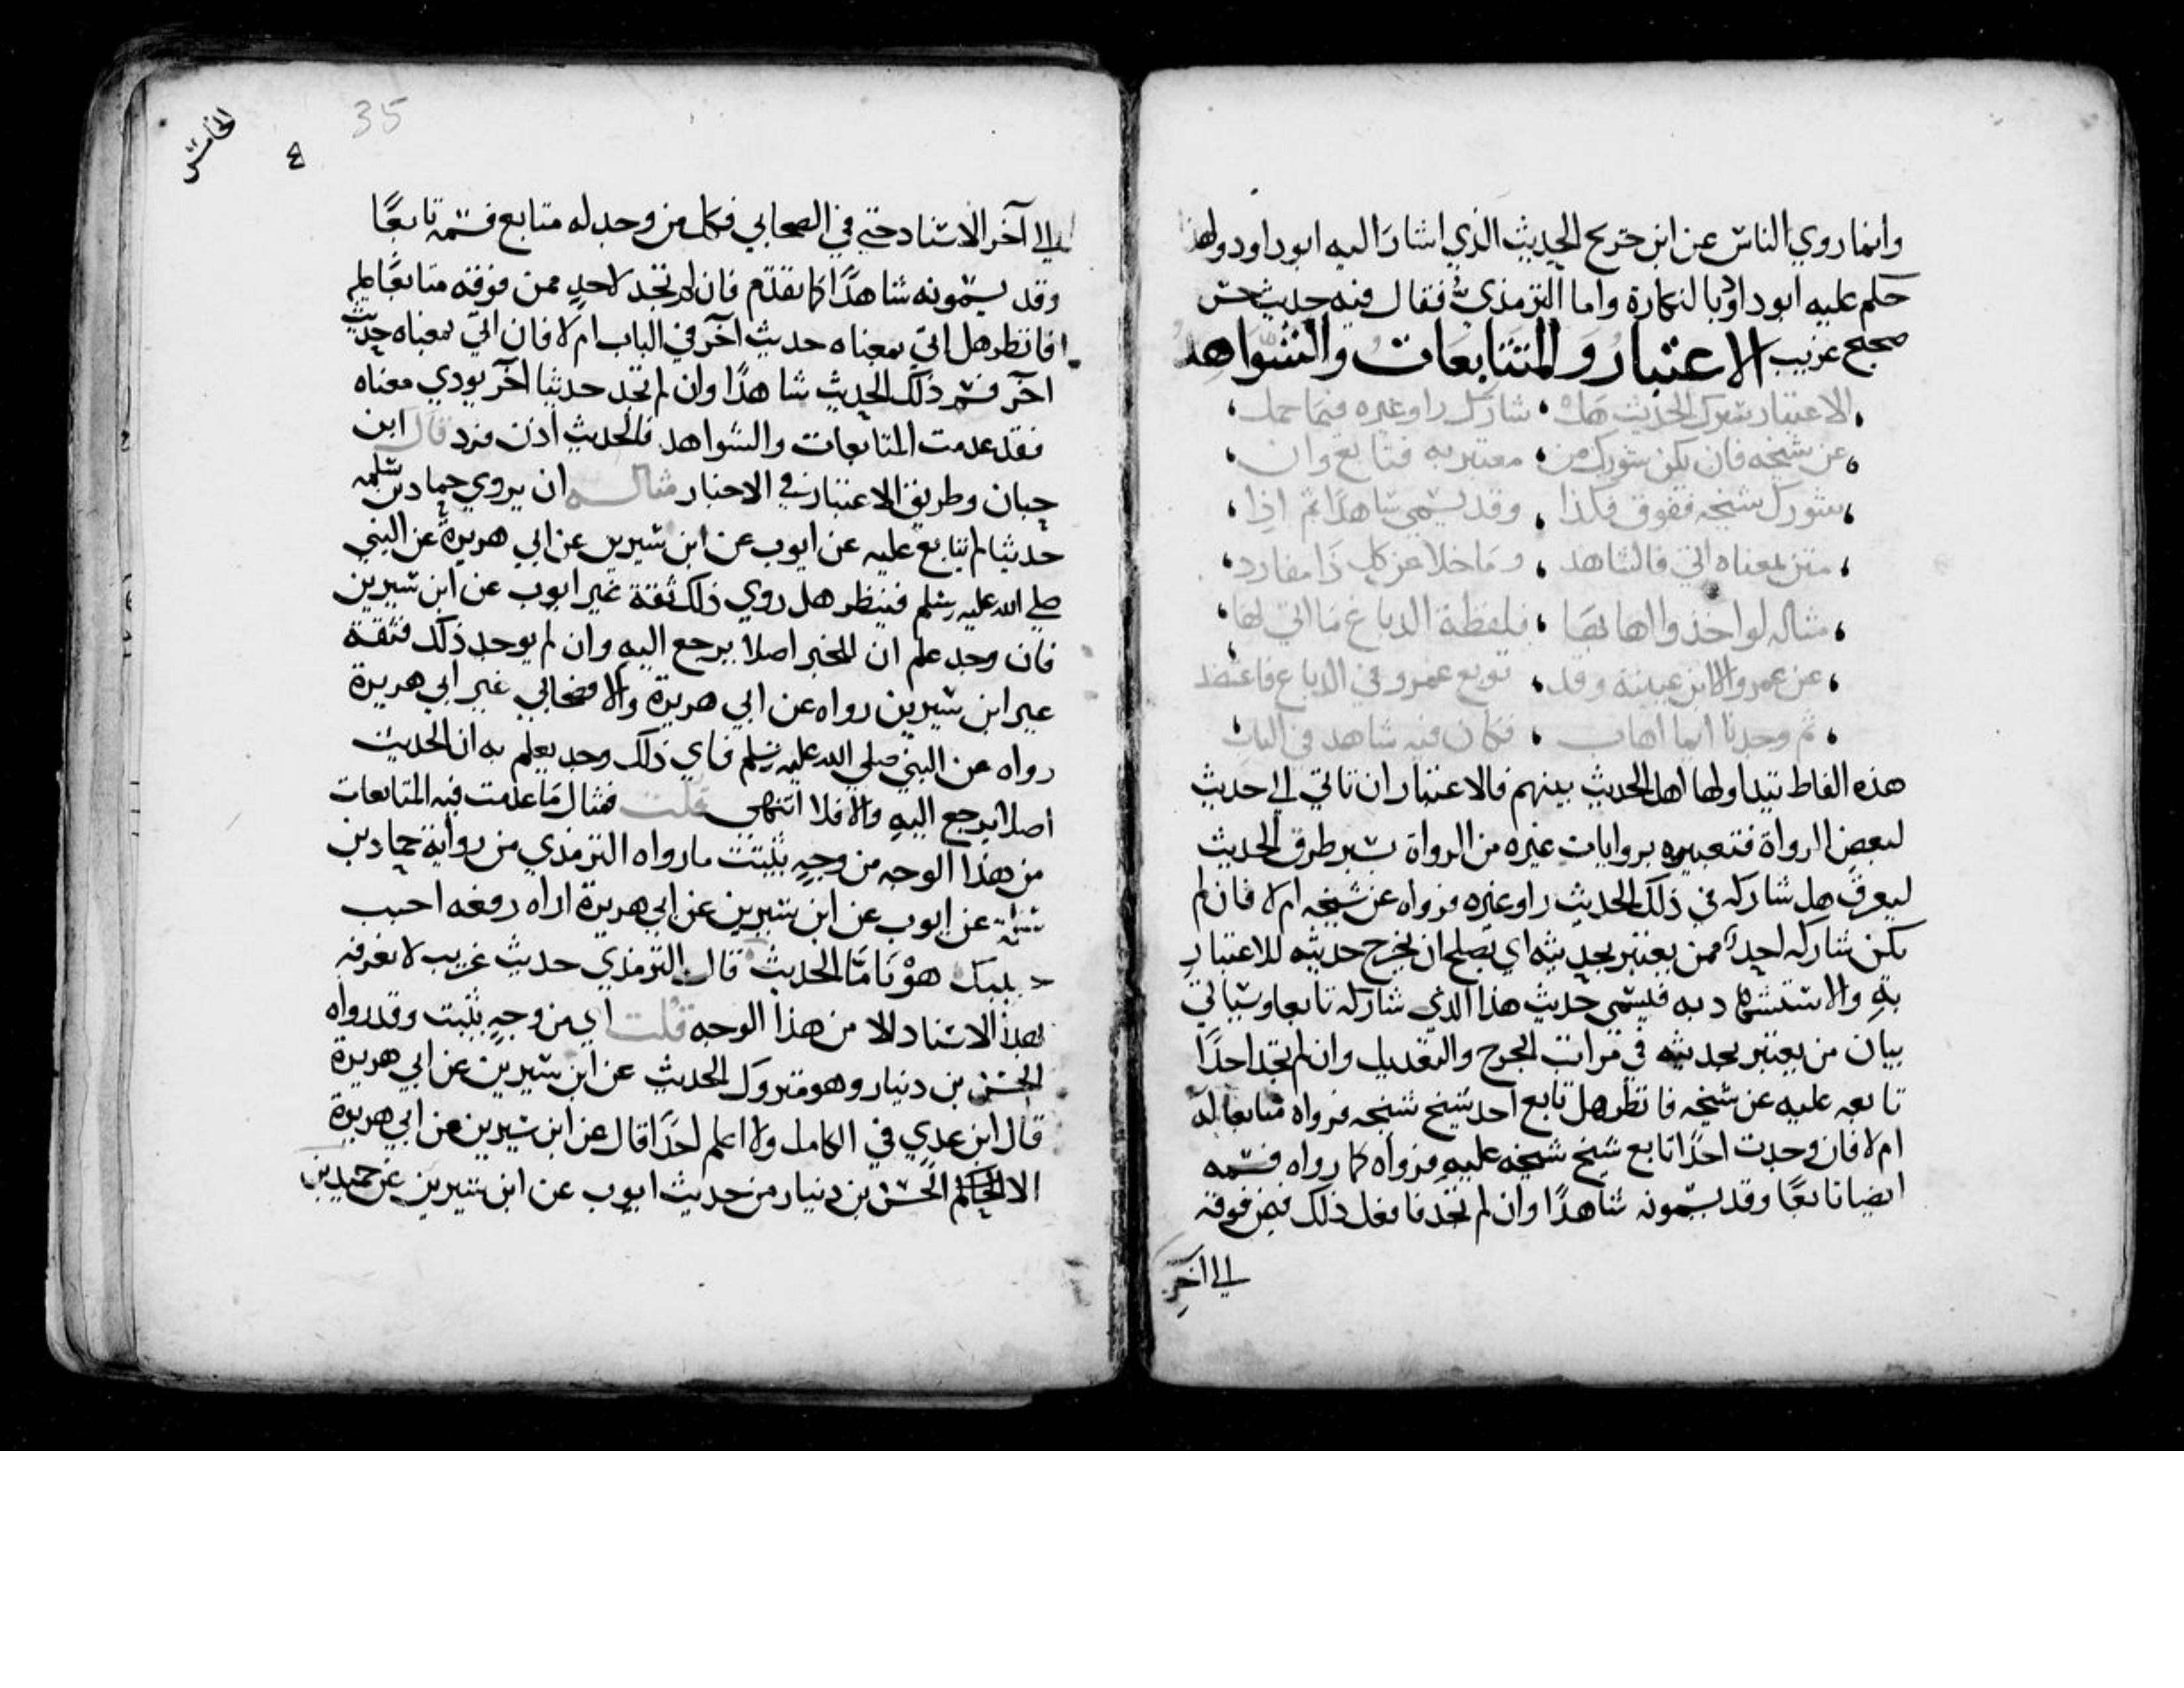 وانما روي الناس عن ابن جريج الحديث الذي اشار اليه ابو داود ولهذا
حكم عليه ابو داود بالنكارة واما الترمذي فقال فيه حديث حسن
صحيح غريب الاعتبار والمتابعات والشواهد
الاعتبار سبرك الحديث هل شارك راو غيره فيما حمل
عن شيخه فان يكن شورك من معتبر به فتابع وان
شورك شيخه ففوق فكذا وقد يسمى شاهدا ثم اذا
متن بمعناه اتي فالشاهد وما خلا عن كل ذا مفارد
مثاله لو اخذوا اهابها فلفظة الدباغ ما اتي بها
عن عمرو الا ابن عيينة وقد توبع عمرو في الدباغ فاعتضد
ثم وجدنا ايما اهاب فكان فيه شاهد في الباب
هذه الفاظ يتداولها اهل الحديث بينهم فالاعتبار ان تاتي الي حديث
لبعض الرواة فتعتبره بروايات غيره من الرواة بسبر طرق الحديث
ليعرف هل شاركه في ذلك الحديث راو غيره فرواه عن شيخه ام لا فان لم
يكن شاركه احد ممن يعتبر بحديثه اي يصلح ان يخرج حديثه للاعتبار
به والاستشهاد به فيسمى حديث هذا الذي شاركه تابعا وسياتي
بيان من يعتبر بحديثه في مراتب الجرح والتعديل وان لم تجد احدا
تابعه عليه عن شيخه فانظر هل تابع احد شيخ شيخه فرواه متابعا له
ام لا فان وجدت احدا تابع شيخ شيخه عليه فرواه كما رواه فسمه
ايضا تابعا وقد يسمونه شاهدا وان لم تجد فافعل ذلك فيمن فوقه
الي اخر
35
٤
الخامس
الي آخر الاسناد حتي في الصحابي فكل من وجد له متابع فسمه تابعا
وقد يسمونه شاهدا كما تقدم فان لم تجد لاحد ممن فوقه متابعا عليه
فانظر هل اتي بمعناه حديث آخر في الباب ام لا فان اتي بمعناه حديث
آخر فسم ذلك الحديث شاهدا وان لم تجد حديثا آخر يودي معناه
فقد عدمت المتابعات والشواهد فالحديث اذن فرد قال ابن
حبان وطريق الاعتبار في الاخبار مثاله ان يروي حماد بن سلمه
حديثا لم يتابع عليه عن ايوب عن ابن سيرين عن ابي هريرة عن النبي
صلي الله عليه وسلم فينظر هل روي ذلك ثقة غير ايوب عن ابن سيرين
فان وجد علم ان للخبر اصلا يرجع اليه وان لم يوجد ذلك فثقة
غير ابن سيرين رواه عن ابي هريرة والا فصحابي غير ابي هريرة
رواه عن النبي صلي الله عليه وسلم فاي ذلك وجد يعلم به ان للحديث
اصلا يرجع اليه والا فلا انتهى قلت فمثال ما عدمت فيه المتابعات
من هذا الوجه من وجه يثبت ما رواه الترمذي من رواية حماد بن
سلمة عن ايوب عن ابن سيرين عن ابي هريرة اراه رفعه احبب
حبيبك هونا ما الحديث قال الترمذي حديث غريب لا نعرفه
بهذا الاسناد الا من هذا الوجه قلت اي من وجه يثبت وقد رواه
الحسن بن دينار وهو متروك الحديث عن ابن سيرين عن ابي هريرة
قال ابن عدي في الكامل ولا اعلم احدا قال عن ابن سيرين عن ابي هريرة
الا الحسن بن دينار من حديث ايوب عن ابن سيرين عن حميد بن